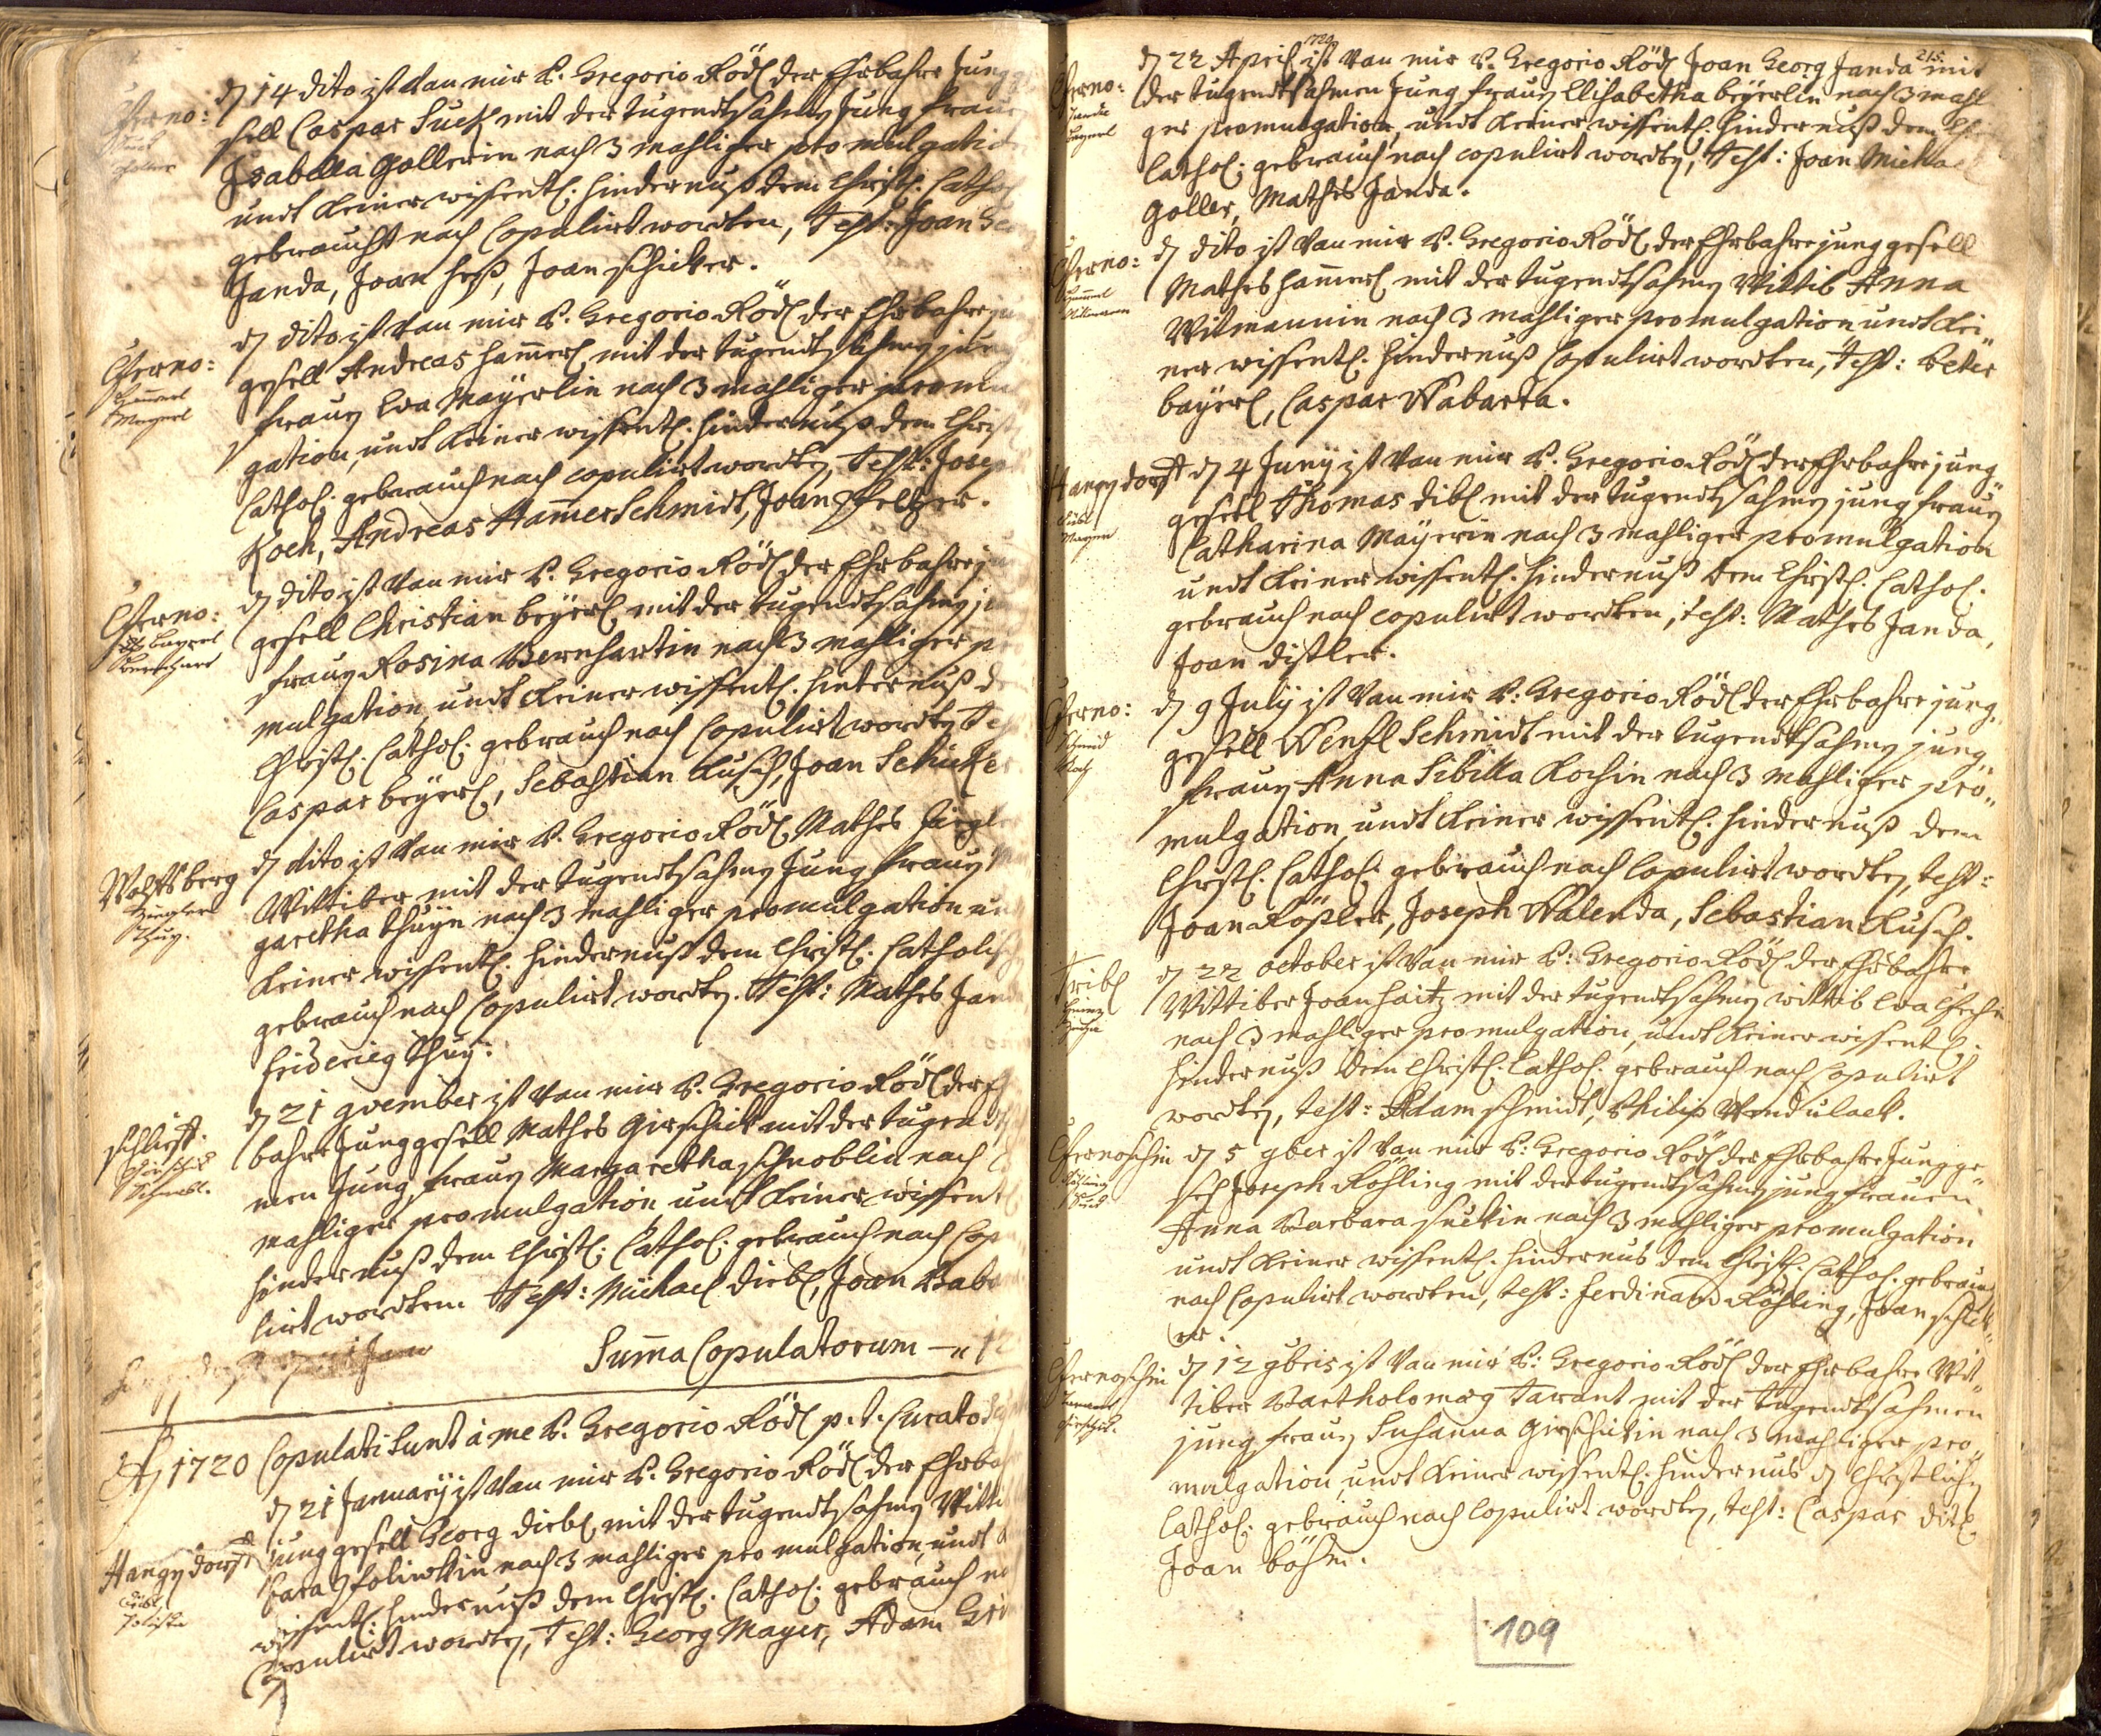 Czerno:
Suck
Goller
dn 14 dito ist Van mir P. Gregorio Rödl der Ehrbahre Jungge
sell Caspar Suck mit der tugendtsahmen Jungfrauen
Isabella Gollerin nach 3 mahliger promulgation
undt keiner wissentl. hindernuß dem Christl. Cathol
gebraucht nach Copulirt wordten, Test: Joan Ge
Janda, Joan heß, Joan schicker.
Czerno:
Hamerl
Mayerl
dn dito ist Van mir P. Gregorio Rödl der Ehrbahre jung
gesell Andreas hamerl mit der tugendtsahmen jung
frauen Eva Mayerlin nach 3 mahliger promul
gation, undt keiner wissentl. hindernuß dem Christ
Cathol: gebrauch nach copulirt wordten, Test: Joseph
Koch, Andreas Hamerschmidt, Joan
Czerno:
Bayrel
dn dito ist Van mir P. Gregorio Rödl der Ehrbahre j
gesell Christian beyerl mit der tugendtsahmen j
frauen Rosina Bernhartin nach 3 mahliger pro
mulgation, undt keiner wissentl. hinternuß d
Christl. Cathol: gebrauch nach Copulirt wordten Te
Caspar beyerl, Sebastian Kusch, Joan Schicker.
Wolfsberg
Thuy.
dn dito ist Van mir P. Gregorio Rödl Mathes
Wittiber mit der tugendtsahmen Jungfrauen
garetha thuyn nach 3 mahliger promulgation un
keiner wissentl. hindernuß dem Christl. Catholisch
gebrauch nach Copulirt wordten. Test: Mathes Jan
friderieg thuy.
Schlief.
Girschik
Schnobl.
dn 21 9vember ist Van mir P. Gregorio Rödl der Eh
bahre Junggesell Mathes Girschick mit der tugendts
men Jungfrauen Margaretha schnoblin nach 3
mahliger promulgation undt keiner wissentl
hindernuß dem Christl: Cathol: gebrauch nach Cop
lirt wordten Test: Michael diebl, Joan Baba
Suma Copulatorum — 12
Ao 1720 Copulati Sunt à me P. Gregorio Rödl p. t. Curato
Hangendorff
Dibl
dn 21 January ist Van mir P. Gregorio Rödl der Ehrba
junggesell Georg diebl mit der tugendtsahmen Witti
nach 3 mahliger promulgation, undt
wissentl: hindernuß dem Christl. Cathol: gebrauch na
Copulirt wordten, Test: Georg Mayer, Adam
215.
720
Czerno:
Janda
Bayerl
dn 22 April ist Van mir P. Gregorio Rödl Joan Georg Janda mit
der tugendtsahmen Jungfrauen Elisabetha beyerlin nach 3 mahl
ger promulgation, undt keiner wissentl. hindernuß dem Chri
Cathol: gebrauch nach copulirt wordten, Test: Joan Michael
Goller, Mathes Janda.
Czerno:
Hamerl
Witmann
dn dito ist Van mir P. Gregorio Rödl der Ehrbahre junggesell
Mathes hamerl mit der tugendtsahmen Wittib Anna
Witmannin nach 3 mahliger promulgation undt kei„
ner wissentl. hindernuß Copulirt wordten, Test: Peter
bayerl, Caspar Wabarta.
Hangendorff
Dibl
Mayer
dn 4 Juny ist Van mir P. Gregorio Rödl der Ehrbahre jung„
gesell Thomas dibl mit der tugendtsahmen jungfrauen
Catharina Mayerin nach 3 mahliger promulgation
undt keiner wissentl. hindernuß dem Christl. Cathol.
gebrauch nach copulirt wordten, test: Mathes Janda,
Joan distler.
Czerno:
Schmid
Koch
dn 9 July ist Van mir P. Gregorio Rödl der Ehrbahre jung„
gesell Wenzl Schmidt mit der tugendtsahmen jung„
frauen Anna Sibilla Kochin nach 3 mahliger pro„
mulgation, undt keiner wissentl. hindernuß dem
Christl. Cathol: gebrauch nach Copulirt wordten, test:
Joan Rößler, Joseph Walenda, Sebastian Kusch.
Tribl
dn 22 october ist Van mir P. Gregorio Rödl der Ehrbahre
Wittiber Joan haitz mit der tugendtsahmen wittib Eva
nach 3 mahliger promulgation, undt keiner wissentl.
hindernuß dem Christl. Cathol. gebrauch nach Copulirt
wordten, test: Adam schmidt, Philip Wondulack.
Czernoschin
Röhling
Suck
dn 5 9ber ist Van mir P. Gregorio Rödl der Ehrbahre Jungge„
sell Joseph Röhling mit der tugendtsahmen jungfrauen
Anna Barbara suckin nach 3 mahliger promulgation
undt keiner wissentl. hindernus dem Christl. Cathol. gebrauch
nach Copulirt wordten, test: Ferdinand Röhling, Joan schick„
er.
Czernoschin
Tarant
Girschik.
dn 12 9bris ist Van mir P. Gregorio Rödl der Ehrbahre Wit„
tiber Bartholomæg Tarant mit der tugendtsahmen
jungfrauen Susanna Girschickin nach 3 mahliger pro„
mulgation, undt keiner wissentl. hindernus dn Christlichen
Cathol: gebrauch nach Copulirt wordten, test: Caspar ditl
Joan böhm.
109